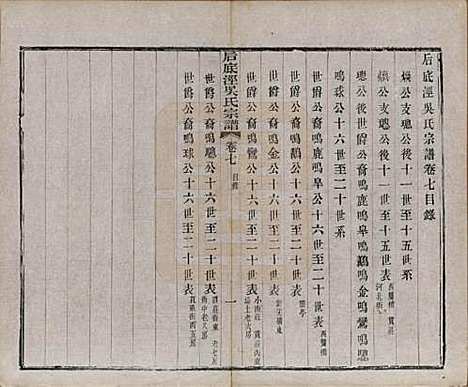 后底涇吳氏宗譜卷七目錄
燦公支璁公後十一世至十五世表
燦公支璁公後十一世至十五世表
璁公後世爵公裔鳴鹿鳴臯鳴鸝鳴金鳴鶯鳴驄
鳴球公十六世至二十世系
世爵公裔鳴鹿鳴臯公十六世至二十世表
世爵公裔鳴鸝公十六世至二十世表
世爵公裔鳴金公十六世至二十世表
后底涇吳氏宗譜
卷七
目錄
一
世爵公裔鳴鶯公十六世至二十世表
世爵公裔鳴驄公十六世至二十世表
世爵公裔鳴球公十六世至二十世表